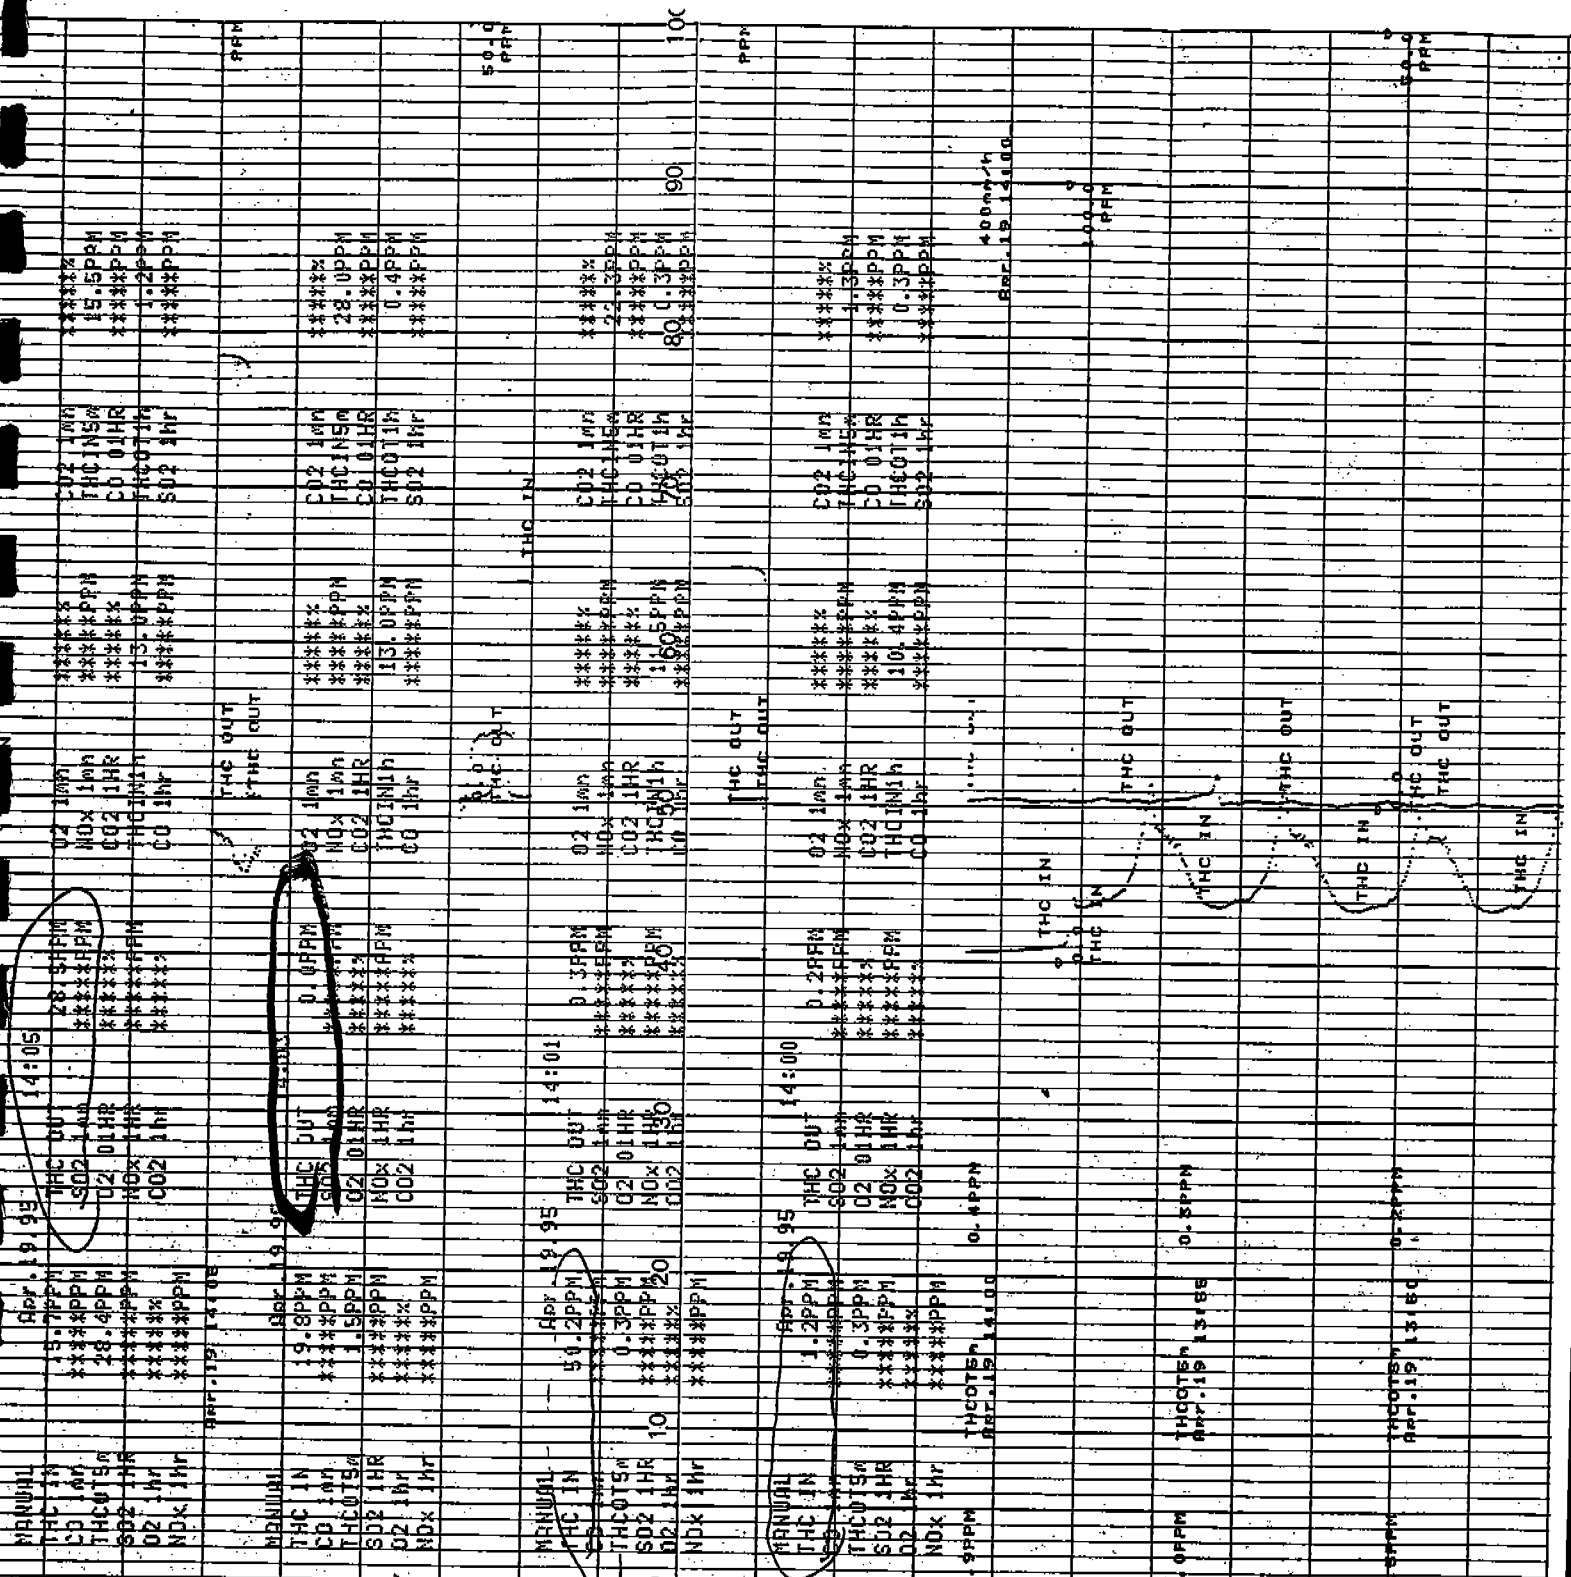 MANUAL Apr.19.95 14:05
THC IN 15.7PPM THC OUT 28.5PPM O2 1mn ******% CO2 1mn ******%
CO 1mn ******PPM SO2 1mn ******PPM NOx 1mn ******PPM THCIN5m 15.5PPM
THCOT5m 28.4PPM O2 01HR ******% CO2 1HR ******% CO 01HR ******PPM
SO2 1HR ******PPM NOx 1HR ******PPM THCIN1h 13.0PPM THCOT1h 1.2PPM
O2 1hr ******% CO2 1hr ******% CO 1hr ******PPM SO2 1hr ******PPM
NOx 1hr ******PPM
Apr.19 14:05 THC OUT PPM
THC OUT
MANUAL Apr.19.95 14:03
THC IN 19.8PPM THC OUT 0.0PPM O2 1mn ******% CO2 1mn ******%
CO 1mn ******PPM SO2 1mn NOx 1mn ******PPM THCIN5m 28.0PPM
THCOT5m 1.5PPM O2 01HR ******% CO2 1HR ******% CO 01HR ******PPM
SO2 1HR ******PPM NOx 1HR ******PPM THCIN1h 13.0PPM THCOT1h 0.4PPM
O2 1hr ******% CO2 1hr ******% CO 1hr ******PPM SO2 1hr ******PPM
NOx 1hr ******PPM
50.0
THC OUT PPM
THC IN
MANUAL Apr.19.95 14:01
THC IN 50.2PPM THC OUT 0.3PPM O2 1mn ******% CO2 1mn ******%
CO 1mn SO2 1mn ******PPM NOx 1mn ******PPM THCIN5m 22.3PPM
THCOT5m 0.3PPM O2 01HR ******% CO2 1HR ******% CO 01HR ******PPM
SO2 1HR ******PPM NOx 1HR ******PPM THCIN1h THCOT1h 0.3PPM
O2 1hr ******% CO2 1hr ******% CO 1hr ******PPM SO2 1hr ******PPM
10 20 30 40 50 60 70 80 90 100
NOx 1hr ******PPM
THC OUT PPM
THC OUT
MANUAL Apr.19.95 14:00
THC IN 1.2PPM THC OUT 0.2PPM O2 1mn ******% CO2 1mn ******%
CO 1mn ******PPM SO2 1mn ******PPM NOx 1mn ******PPM THCIN5m 1.3PPM
THCOT5m 0.3PPM O2 01HR ******% CO2 1HR ******% CO 01HR ******PPM
SO2 1HR ******PPM NOx 1HR ******PPM THCIN1h 10.4PPM THCOT1h 0.3PPM
O2 1hr ******% CO2 1hr ******% CO 1hr ******PPM SO2 1hr ******PPM
NOx 1hr ******PPM
THCOT5m 0.4PPM 400mm/h
Apr.19 14:00 Apr.19 14:00
THC IN
0.0 100.0
THC IN PPM
THC OUT
THCOT5m 0.3PPM
Apr.19 13:55 THC IN
THC OUT
THC IN
THCOT5m 0.2PPM 50.0
Apr.19 13:50 THC OUT PPM
THC OUT
THC IN